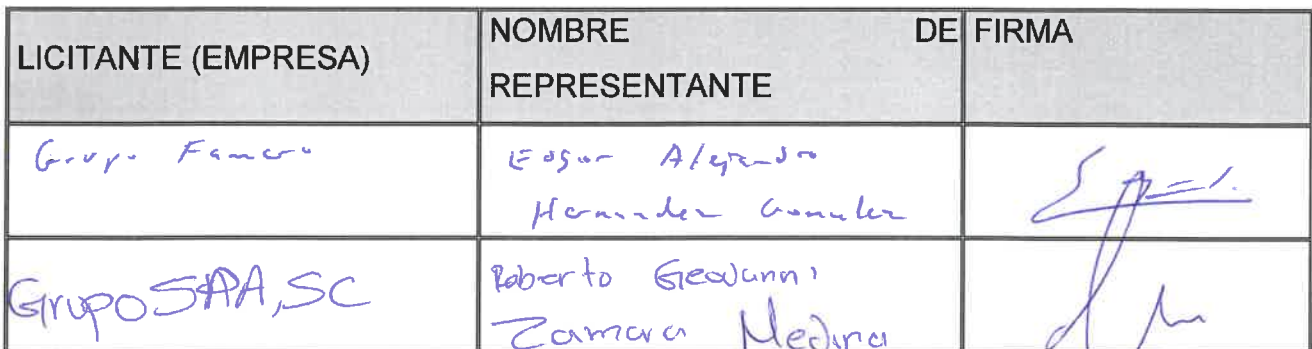 LICITANTE (EMPRESA)
NOMBRE DE
REPRESENTANTE
FIRMA
Grupo Famero
Edgar Alejandro
Hernandez Gonzalez
Grupo SAPA, SC
Roberto Geovanni
Zamora Medina